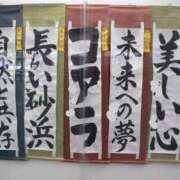 美しい心
未来への夢
コアラ
長い砂浜
自然と共存